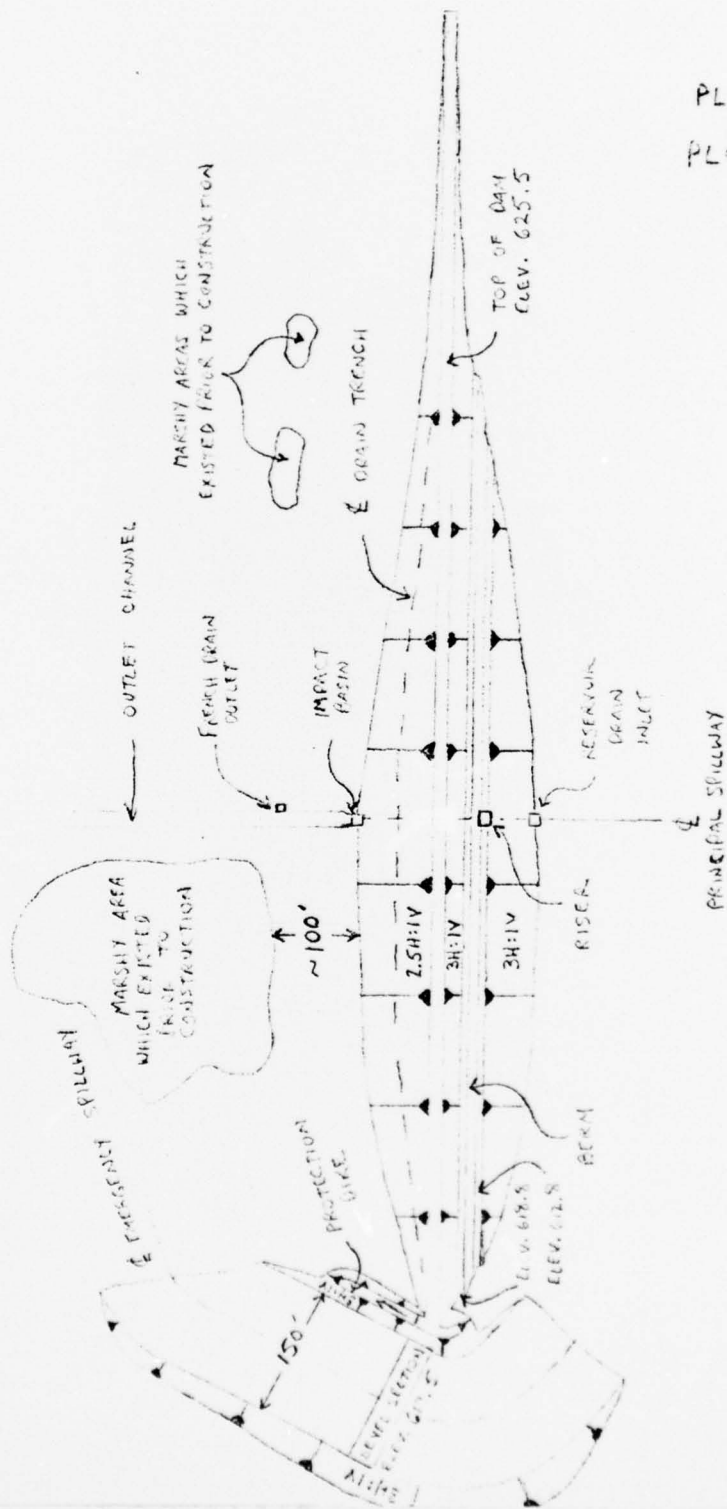 PL
PL
MARSHY AREAS WHICH
EXISTED PRIOR TO CONSTRUCTION
TOP OF DAM
ELEV. 625.5
℄ DRAIN TRENCH
OUTLET CHANNEL
FRENCH DRAIN
OUTLET
IMPACT
BASIN
RESERVOIR
DRAIN
INLET
℄
PRINCIPAL SPILLWAY
RISER
MARSHY AREA
WHICH EXISTED
PRIOR TO
CONSTRUCTION
~100'
2.5H:1V
3H:1V
3H:1V
BERM
℄ EMERGENCY SPILLWAY
PROTECTION
DIKE
ELEV. 618.8
ELEV. 612.8
150'
LEVEL SECTION